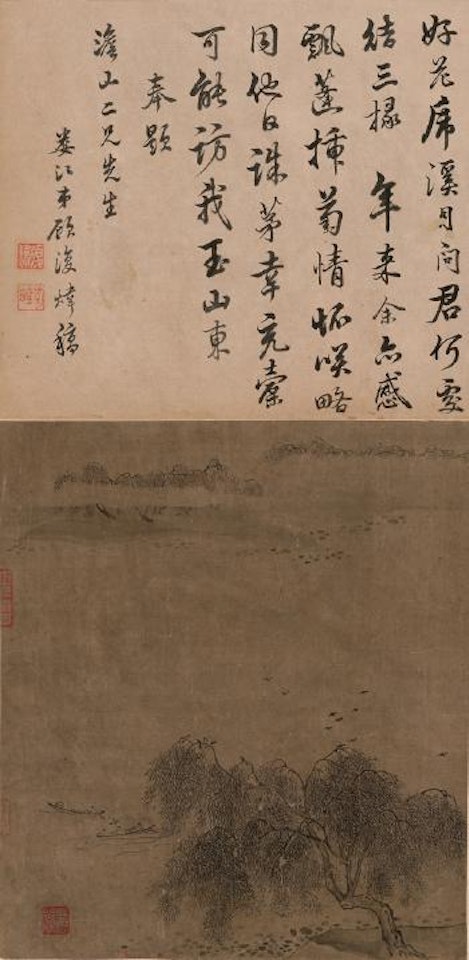 好花席溪月問君何處
結三椽 年來余亦感
飄蓬插菊情懷咲略
同他日誅茅幸充
可能訪我玉山東
奉題
澹山二兄先生
婁江弟顧煒稿